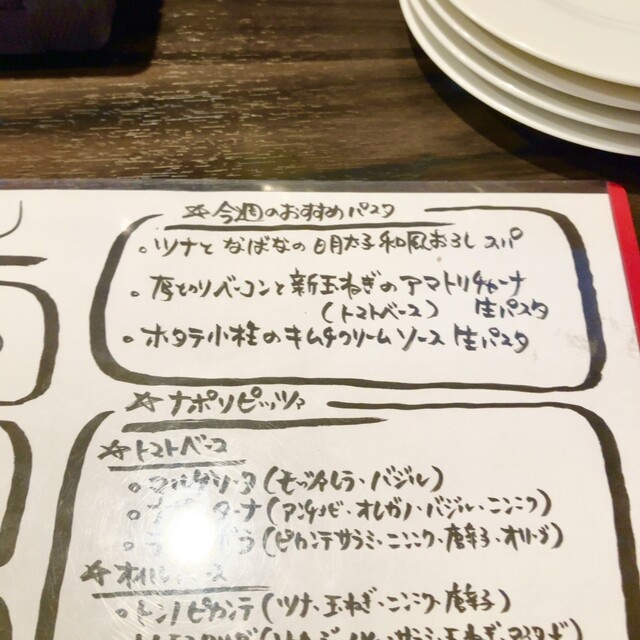 ☆今週のおすすめパスタ
・ツナと なばなの 明太子 和風おろし スパ
・厚切りベーコンと新玉ねぎのアマトリチャーナ
(トマトベース) 生パスタ
・ホタテ小柱のキムチクリームソース 生パスタ
☆ナポリピッツァ
☆トマトベース
・マルゲリータ(モッツァレラ・バジル)
(アンチョビ・オレガノ・バジル・ニンニク)
(ピカンテサラミ・ニンニク・唐辛子・オリーブ)
☆オイルベース
ピカンテ(ツナ・玉ねぎ・ニンニク・唐辛子)